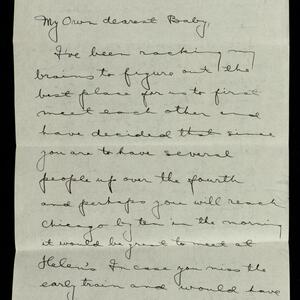 My Own dearest Baby,
I've been racking my
brains to figure out the
best place for us to first
meet each other and
have decided that since
you are to have several
people up over the fourth
and perhaps you will reach
Chicago by ten in the morning
it would be great to meet at
Helen's. In case you miss the
early train and would have